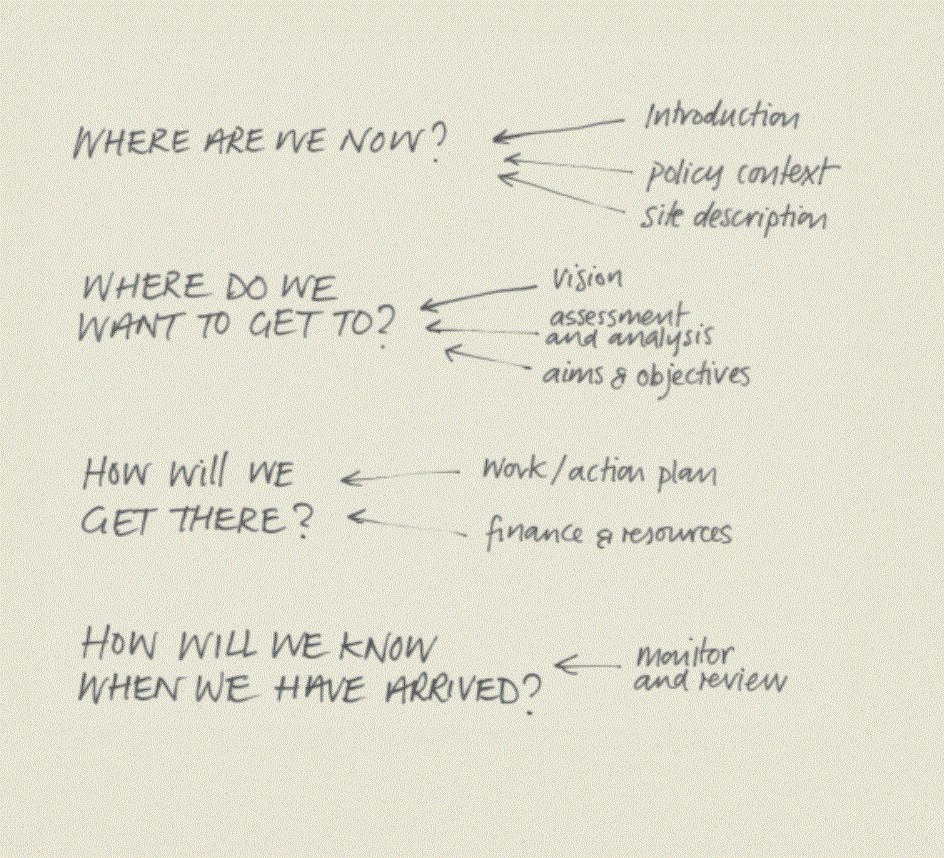 WHERE ARE WE NOW?
Introduction
policy context
site description
WHERE DO WE
WANT TO GET TO?
Vision
assessment
and analysis
aims & objectives
HOW WILL WE
GET THERE?
Work/action plan
finance & resources
HOW WILL WE KNOW
WHEN WE HAVE ARRIVED?
monitor
and review